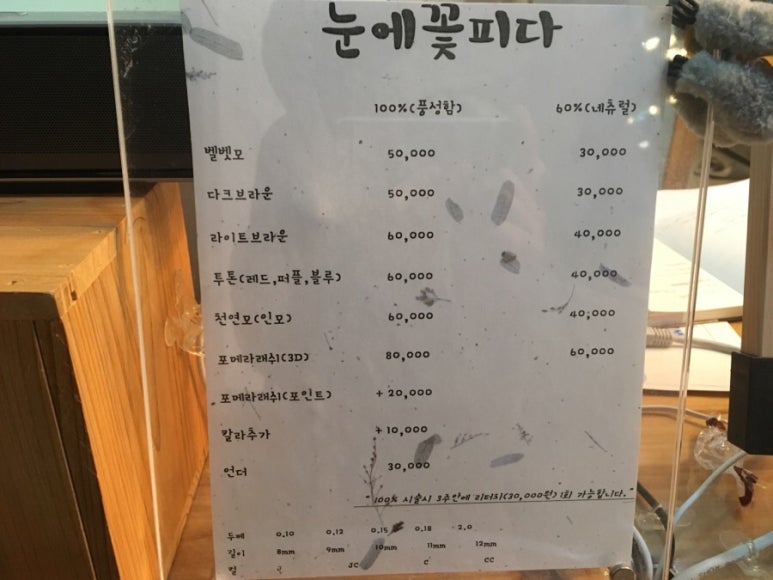 눈에꽃피다
100%(풍성함) 60%(네츄럴)
벨벳모 50,000 30,000
다크브라운 50,000 30,000
라이트브라운 60,000 40,000
투톤(레드,퍼플,블루) 60,000 40,000
천연모(인모) 60,000 40,000
포메라래쉬(3D) 80,000 60,000
포메라래쉬(포인트) + 20,000
칼라추가 + 10,000
언더 30,000
"100% 시술시 3주안에 리터치(30,000원) 1회 가능합니다."
두께 0.10 0.12 0.15 0.18 2.0
길이 8mm 9mm 10mm 11mm 12mm
컬 JC C CC